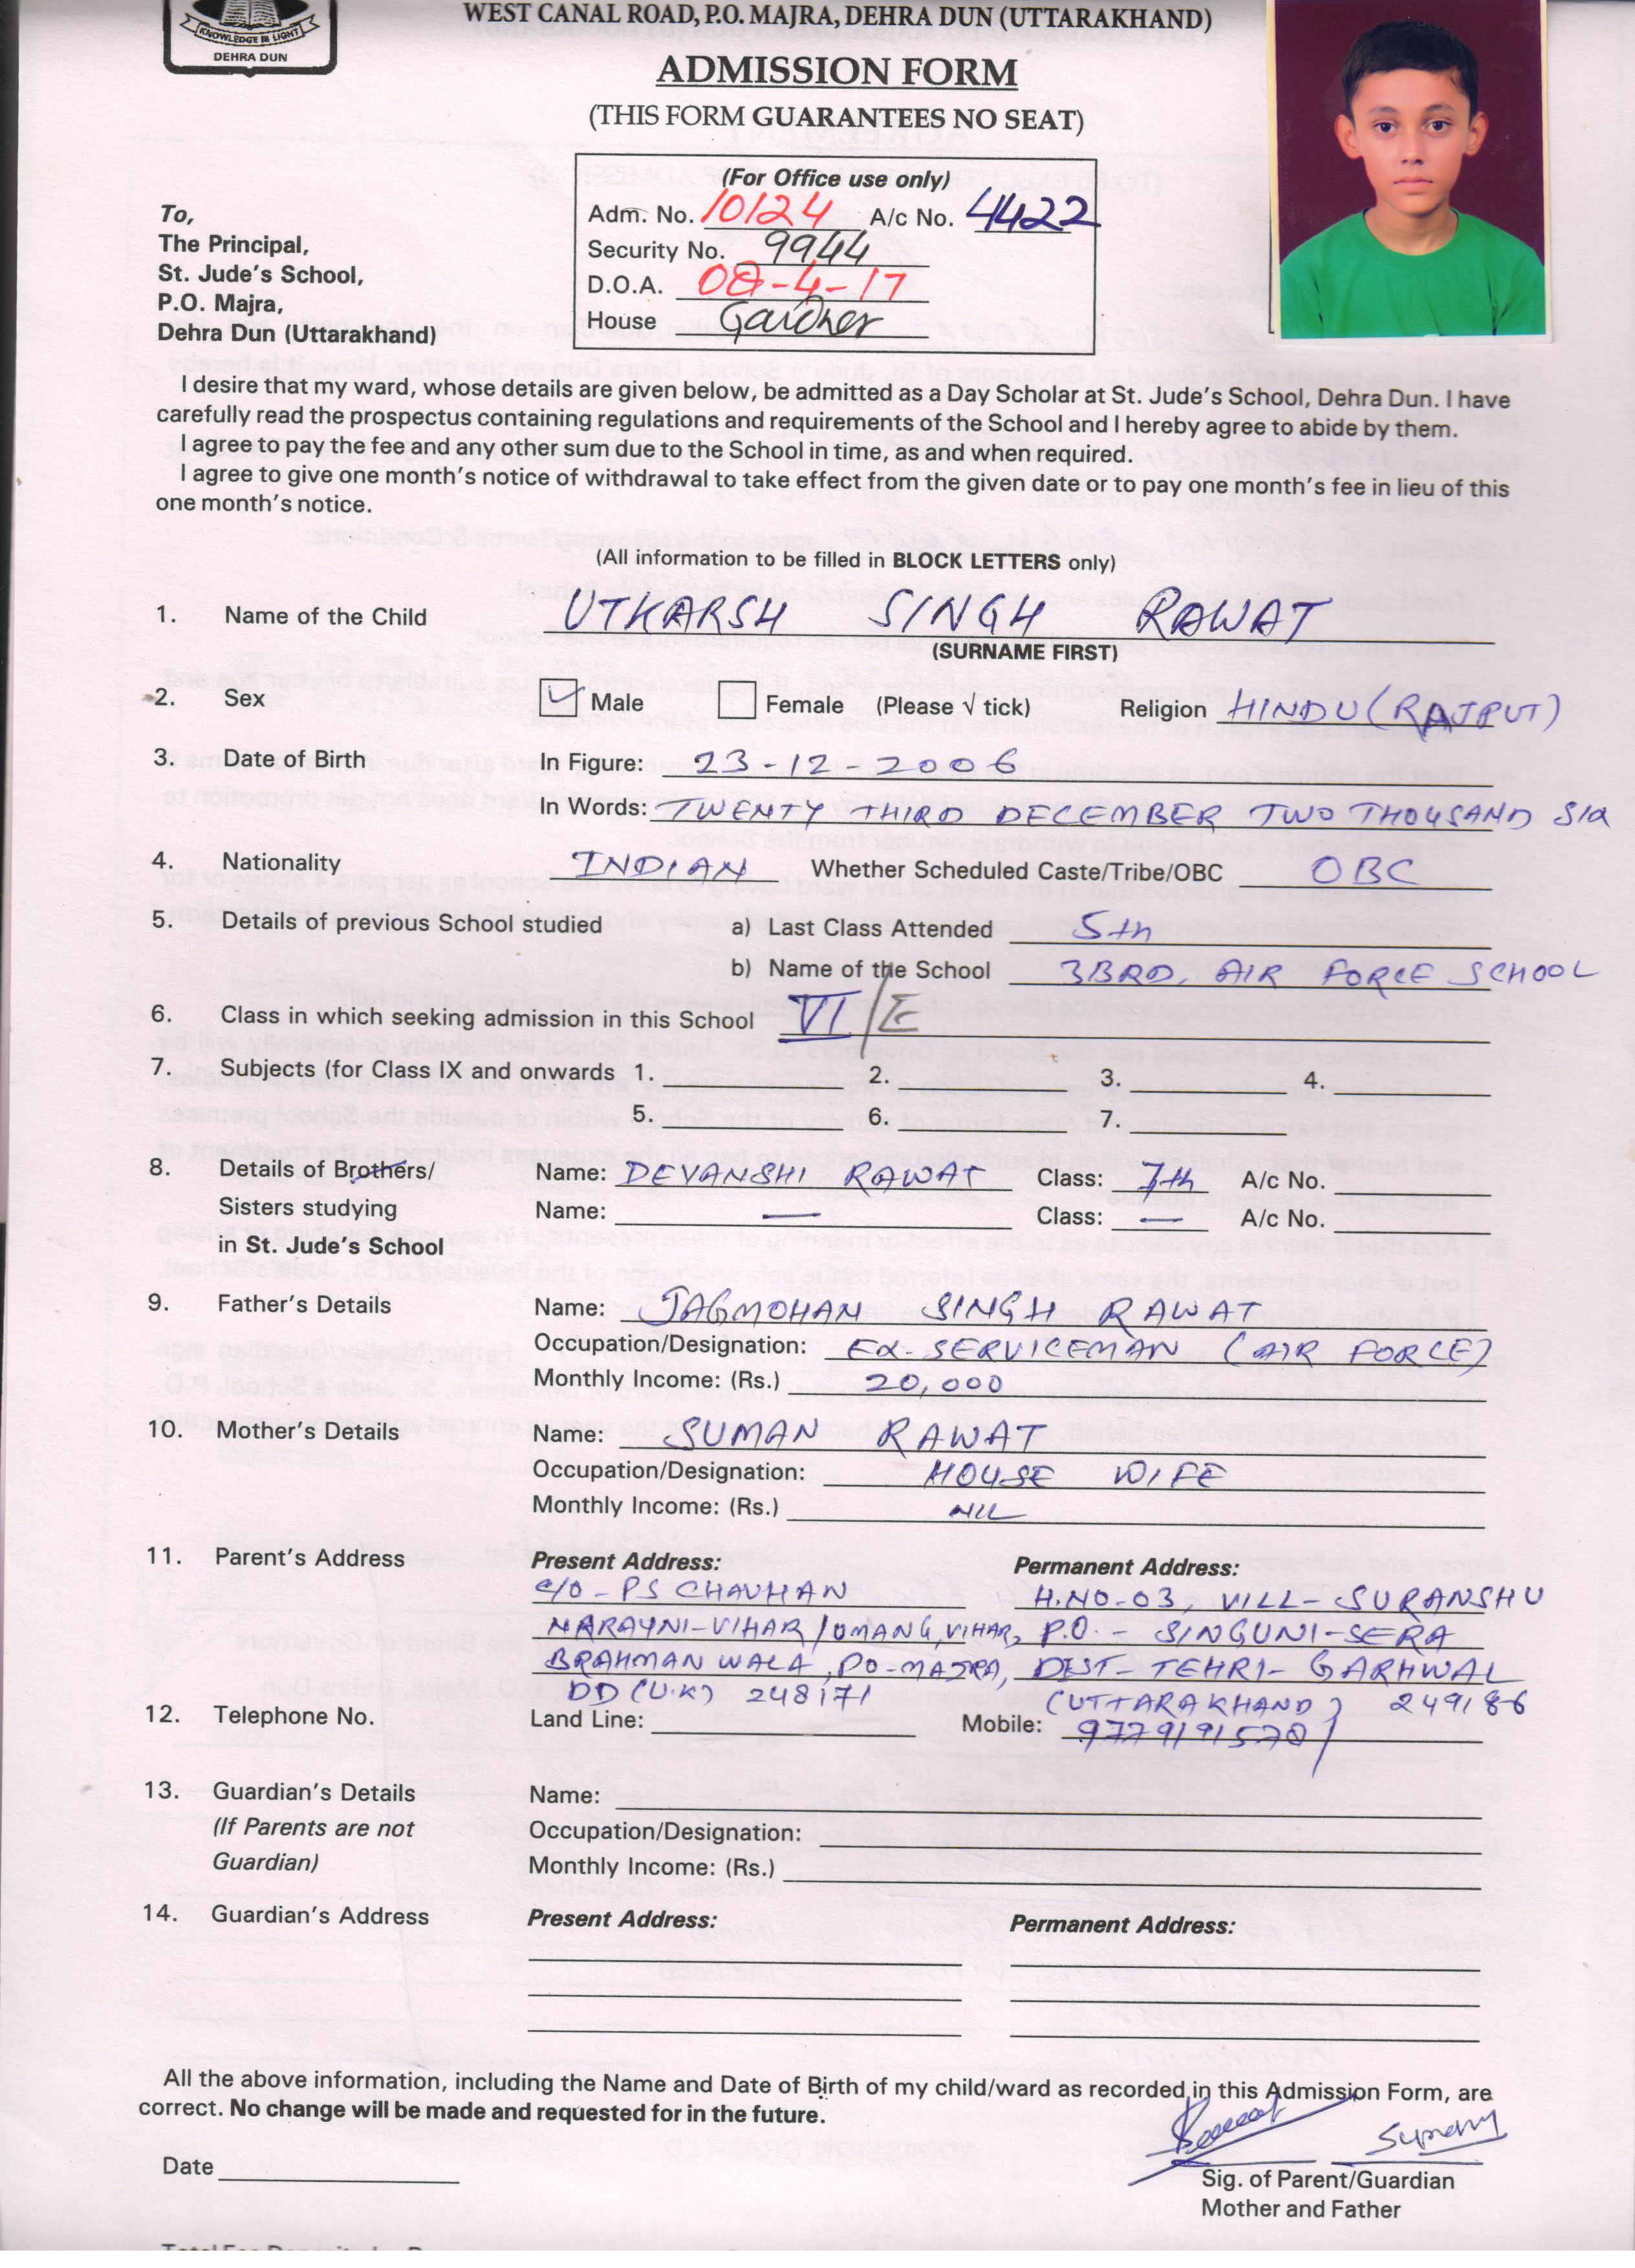 WEST CANAL ROAD, P.O. MAJRA, DEHRA DUN (UTTARAKHAND)
KNOWLEDGE IS LIGHT
DEHRA DUN
ADMISSION FORM
(THIS FORM GUARANTEES NO SEAT)
(For Office use only)
Adm. No. 10124 A/c No. 4422
Security No. 9944
D.O.A. 08-4-17
House Gardner
To,
The Principal,
St. Jude's School,
P.O. Majra,
Dehra Dun (Uttarakhand)
I desire that my ward, whose details are given below, be admitted as a Day Scholar at St. Jude's School, Dehra Dun. I have
carefully read the prospectus containing regulations and requirements of the School and I hereby agree to abide by them.
I agree to pay the fee and any other sum due to the School in time, as and when required.
I agree to give one month's notice of withdrawal to take effect from the given date or to pay one month's fee in lieu of this
one month's notice.
(All information to be filled in BLOCK LETTERS only)
1. Name of the Child UTKARSH SINGH RAWAT
(SURNAME FIRST)
2. Sex Male Female (Please √ tick) Religion HINDU (RAJPUT)
3. Date of Birth In Figure: 23-12-2006
In Words: TWENTY THIRD DECEMBER TWO THOUSAND SIX
4. Nationality INDIAN Whether Scheduled Caste/Tribe/OBC OBC
5. Details of previous School studied a) Last Class Attended 5th
b) Name of the School 3BRD, AIR FORCE SCHOOL
6. Class in which seeking admission in this School VI/E
7. Subjects (for Class IX and onwards 1. 2. 3. 4.
5. 6. 7.
8. Details of Brothers/ Name: DEVANSHI RAWAT Class: 7th A/c No.
Sisters studying Name: — Class: — A/c No.
in St. Jude's School
9. Father's Details Name: JAGMOHAN SINGH RAWAT
Occupation/Designation: EX-SERVICEMAN (AIR FORCE)
Monthly Income: (Rs.) 20,000
10. Mother's Details Name: SUMAN RAWAT
Occupation/Designation: HOUSE WIFE
Monthly Income: (Rs.) NIL
11. Parent's Address Present Address: Permanent Address:
C/O - PS CHAUHAN H.NO-03, VILL- SURANSHU
NARAYNI-VIHAR/UMANG, VIHAR, P.O. - SINGUNI-SERA
BRAHMAN WALA, PO-MAJRA, DIST- TEHRI- GARHWAL
DD (U.K) 248171 (UTTARAKHAND) 249186
12. Telephone No. Land Line: Mobile: 9779191570
13. Guardian's Details Name:
(If Parents are not Occupation/Designation:
Guardian) Monthly Income: (Rs.)
14. Guardian's Address Present Address: Permanent Address:
All the above information, including the Name and Date of Birth of my child/ward as recorded in this Admission Form, are
correct. No change will be made and requested for in the future.
Rawat Suman
Date
Sig. of Parent/Guardian
Mother and Father